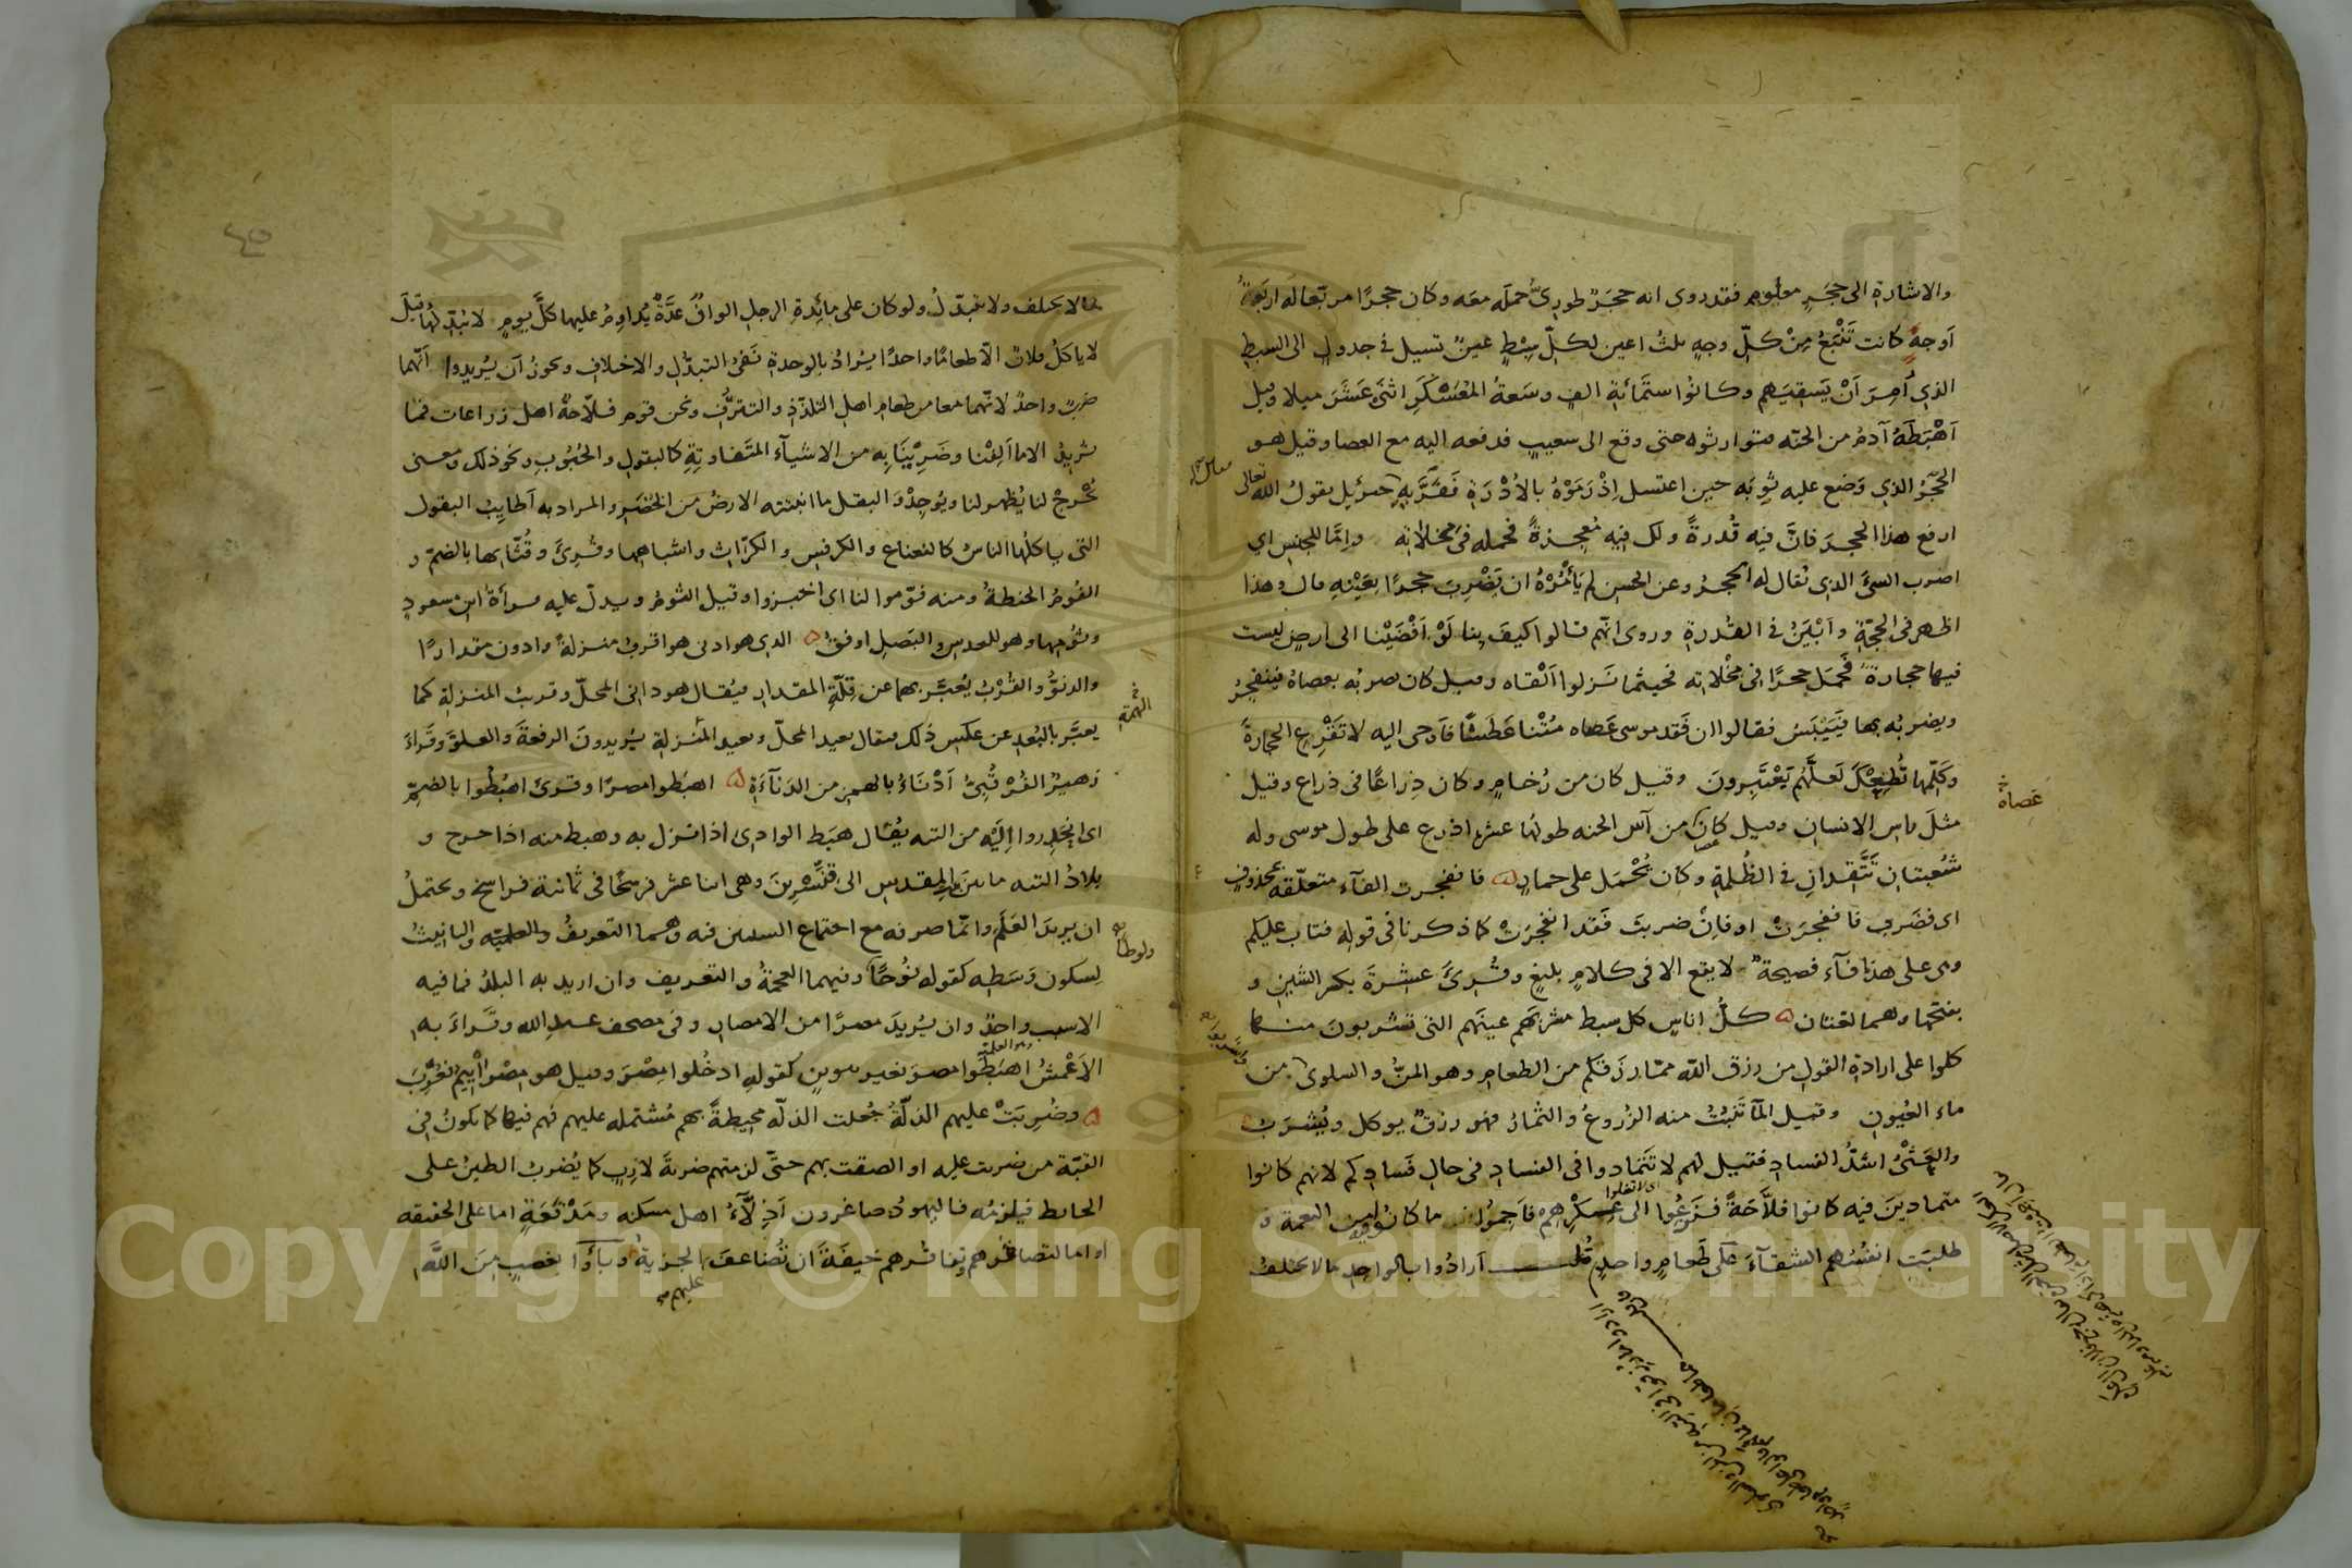 والاشارة الى حجر معلوم فقد روى انه حجر طورى حمله معه وكان حجرا مربعا له اربعة
اوجه كانت تنبع من كل وجه ثلث اعين لكل سبط عين تسيل في جدول الى السبط
الذي امر ان يسقيهم وكانوا ستمائة الف وسعة المعسكر اثنى عشر ميلا وقيل
اهبطه آدم من الجنه فتوارثوه حتى وقع الى شعيب فدفعه اليه مع العصا وقيل هو
الحجر الذي وضع عليه ثوبه حين اغتسل اذ رموه بالادرة ففر به جبرئيل يقول الله تعالى
ارفع هذا الحجر فان فيه قدرة ولك فيه معجزة فحمله في مخلاته واما للجنس اي
اضرب الشئ الذى يقال له الحجر وعن الحسن لم يأمره ان يضرب حجرا بعينه قال وهذا
اظهر في الحجة وابين في القدرة وروى انهم قالوا كيف بنا لو افضينا الى ارض ليست
فيها حجارة فحمل حجرا في مخلاته فحيثما نزلوا القاه وقيل كان يضربه بعصاه فينفجر
ويضربه بها فييبس فقالوا ان فقد موسى عصاه متنا عطشا فاوحى اليه لا تقرع الحجارة
وكلمها تطعك لعلهم يعتبرون وقيل كان من رخام وكان ذراعا في ذراع وقيل
عصاه
مثل راس الانسان وقيل كان من آس الجنه طولها عشر اذرع على طول موسى وله
شعبتان تتقدان في الظلمة وكان يحمل على حمار فانفجرت الفآء متعلقة بمحذوف
اى فضرب فانفجرت او فان ضربت فقد انفجرت كما ذكرنا في قوله فتاب عليكم
وهى على هذا فآء فصيحة لا يقع الا في كلام بليغ وقرئ عشرة بكسر الشين و
بفتحها وهما لغتان كل اناس كل سبط مشربهم عينهم التى تشربون منها
كلوا على ارادة القول من رزق الله مما رزقكم من الطعام وهو المن والسلوى ومن
ماء العيون وقيل المآ تنبت منه الزروع والثمار فهو رزق يوكل ويشرب
والعثى اشد الفساد فقيل لهم لا تتمادوا فى الفساد في حال فسادكم لانهم كانوا
متمادين فيه كانوا فلاحة فنزعوا الى عكرهم فاجموا ما كانوا فيه من النعمة و
طلبت انفسهم الشقآء على طعام واحد قلت ارادوا بالواحد ما لا يختلف
ما لا يختلف ولا يتبدل ولو كان على مائدة الرجل الوان عدة يداوم عليها كل يوم لا يبدلها قيل
لا ياكل فلان الا طعاما واحدا يراد بالوحدة نفى التبدل والاختلاف ويجوز ان يريدوا انهما
ضرب واحد لانهما معا من طعام اهل التلذذ والتترف ونحن قوم فلاحة اهل زراعات فما
نريد الا ما الفنا وضرينا به من الاشيآء المتفاوتة كالبقول والحبوب ونحو ذلك ومعنى
يخرج لنا يظهر لنا ويوجد والبقل ما انبتته الارض من الخضر والمراد به اطايب البقول
التى ياكلها الناس كالنعناع والكرفس والكراث واشباهها وقرئ وقثائها بالضم و
الفوم الحنطة ومنه فوموا لنا اى اختبزوا وقيل الثوم ويدل عليه قرأة ابن مسعود
وثومها وهو للعدس والبصل اوفق الذى هو ادنى هو اقرب منزلة وادون مقدارا
والدنو والقرب يعبر بهما عن قلة المقدار فيقال هو دانى المحل وقريب المنزلة كما
يعبر بالبعد عن عكس ذلك فيقال بعيد المحل وبعيد المنزلة يريدون الرفعة والعلو وقراء
زهير الفرقبى ادناء بالهمز من الدنآءة اهبطوا مصرا وقرئ اهبطوا بالضم
اى انحدروا اليه من التيه يقال هبط الوادى اذا نزل به وهبط منه اذا خرج و
بلاد التيه ما بين المقدس الى قنسرين وهى اثنا عشر فرسخا في ثمانية فراسخ ويحتمل
ان يريد العلم وانما صرفه مع اجتماع السببين فيه وهما التعريف والتانيث
لسكون وسطه كقوله نوحا وفيهما العجمة والتعريف وان اريد به البلد فما فيه
الا سبب واحد وان يريد مصرا من الامصار وفي مصحف عبد الله وقراء به
الاعمش اهبطوا مصر بغير تنوين كقوله ادخلوا مصر وقيل هو مصرائيم فعرب
وضربت عليهم الذلة جعلت الذلة محيطة بهم مشتمله عليهم فهم فيها كما يكون في
القبة من ضربت عليه او الصقت بهم حتى لزمتهم ضربة لازب كما يضرب الطين على
الحائط فيلزمه فاليهود صاغرون اذلآء اهل مسكنه ومدقعة اما على الحقيقه
او اما لتصاغرهم وتفاقرهم خيفة ان تضاعف الجزية وباؤا بغضب من الله
عليهم
Copyright © King Saud University